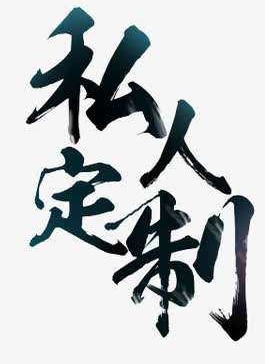 私人
定制